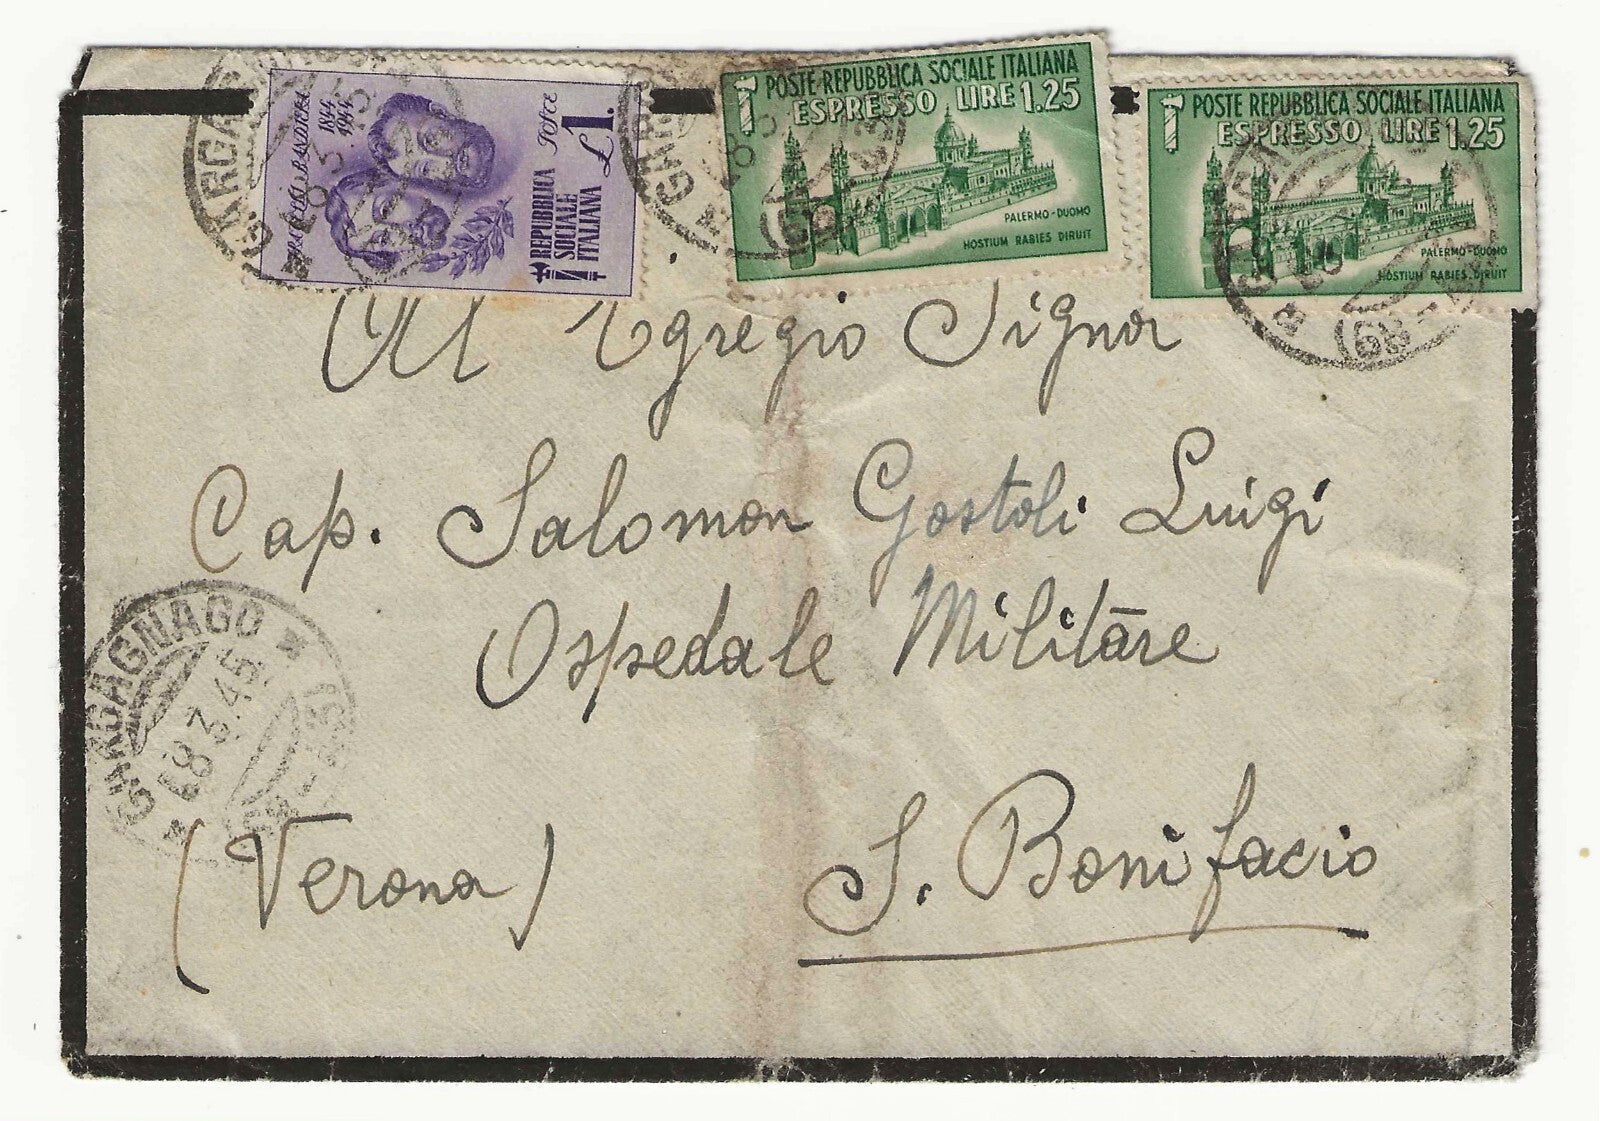 FRATELLI BANDIERA
1844
1944
REPUBBLICA
SOCIALE
ITALIANA
POSTE
£1.
POSTE REPUBBLICA SOCIALE ITALIANA
ESPRESSO LIRE 1.25
PALERMO-DUOMO
HOSTIUM RABIES DIRUIT
POSTE REPUBBLICA SOCIALE ITALIANA
ESPRESSO LIRE 1.25
PALERMO-DUOMO
HOSTIUM RABIES DIRUIT
All Egregio Signor
Cap. Salomon Gostoli Luigi
Ospedale Militare
GARGAGNAGO
8 3.45
(Verona)
S. Bonifacio